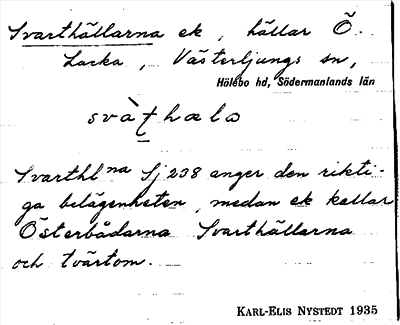 Svarthällarna ek, hällar Ö.
Lacka, Västerljungs sn,
Hölebo hd, Södermanlands län
svàṭhæla
Svarthl na Sj 238 anger den rikti-
ga belägenheten, medan ek kallar
Österbådarna Svarthällarna
och tvärtom.
KARL-ELIS NYSTEDT 1935